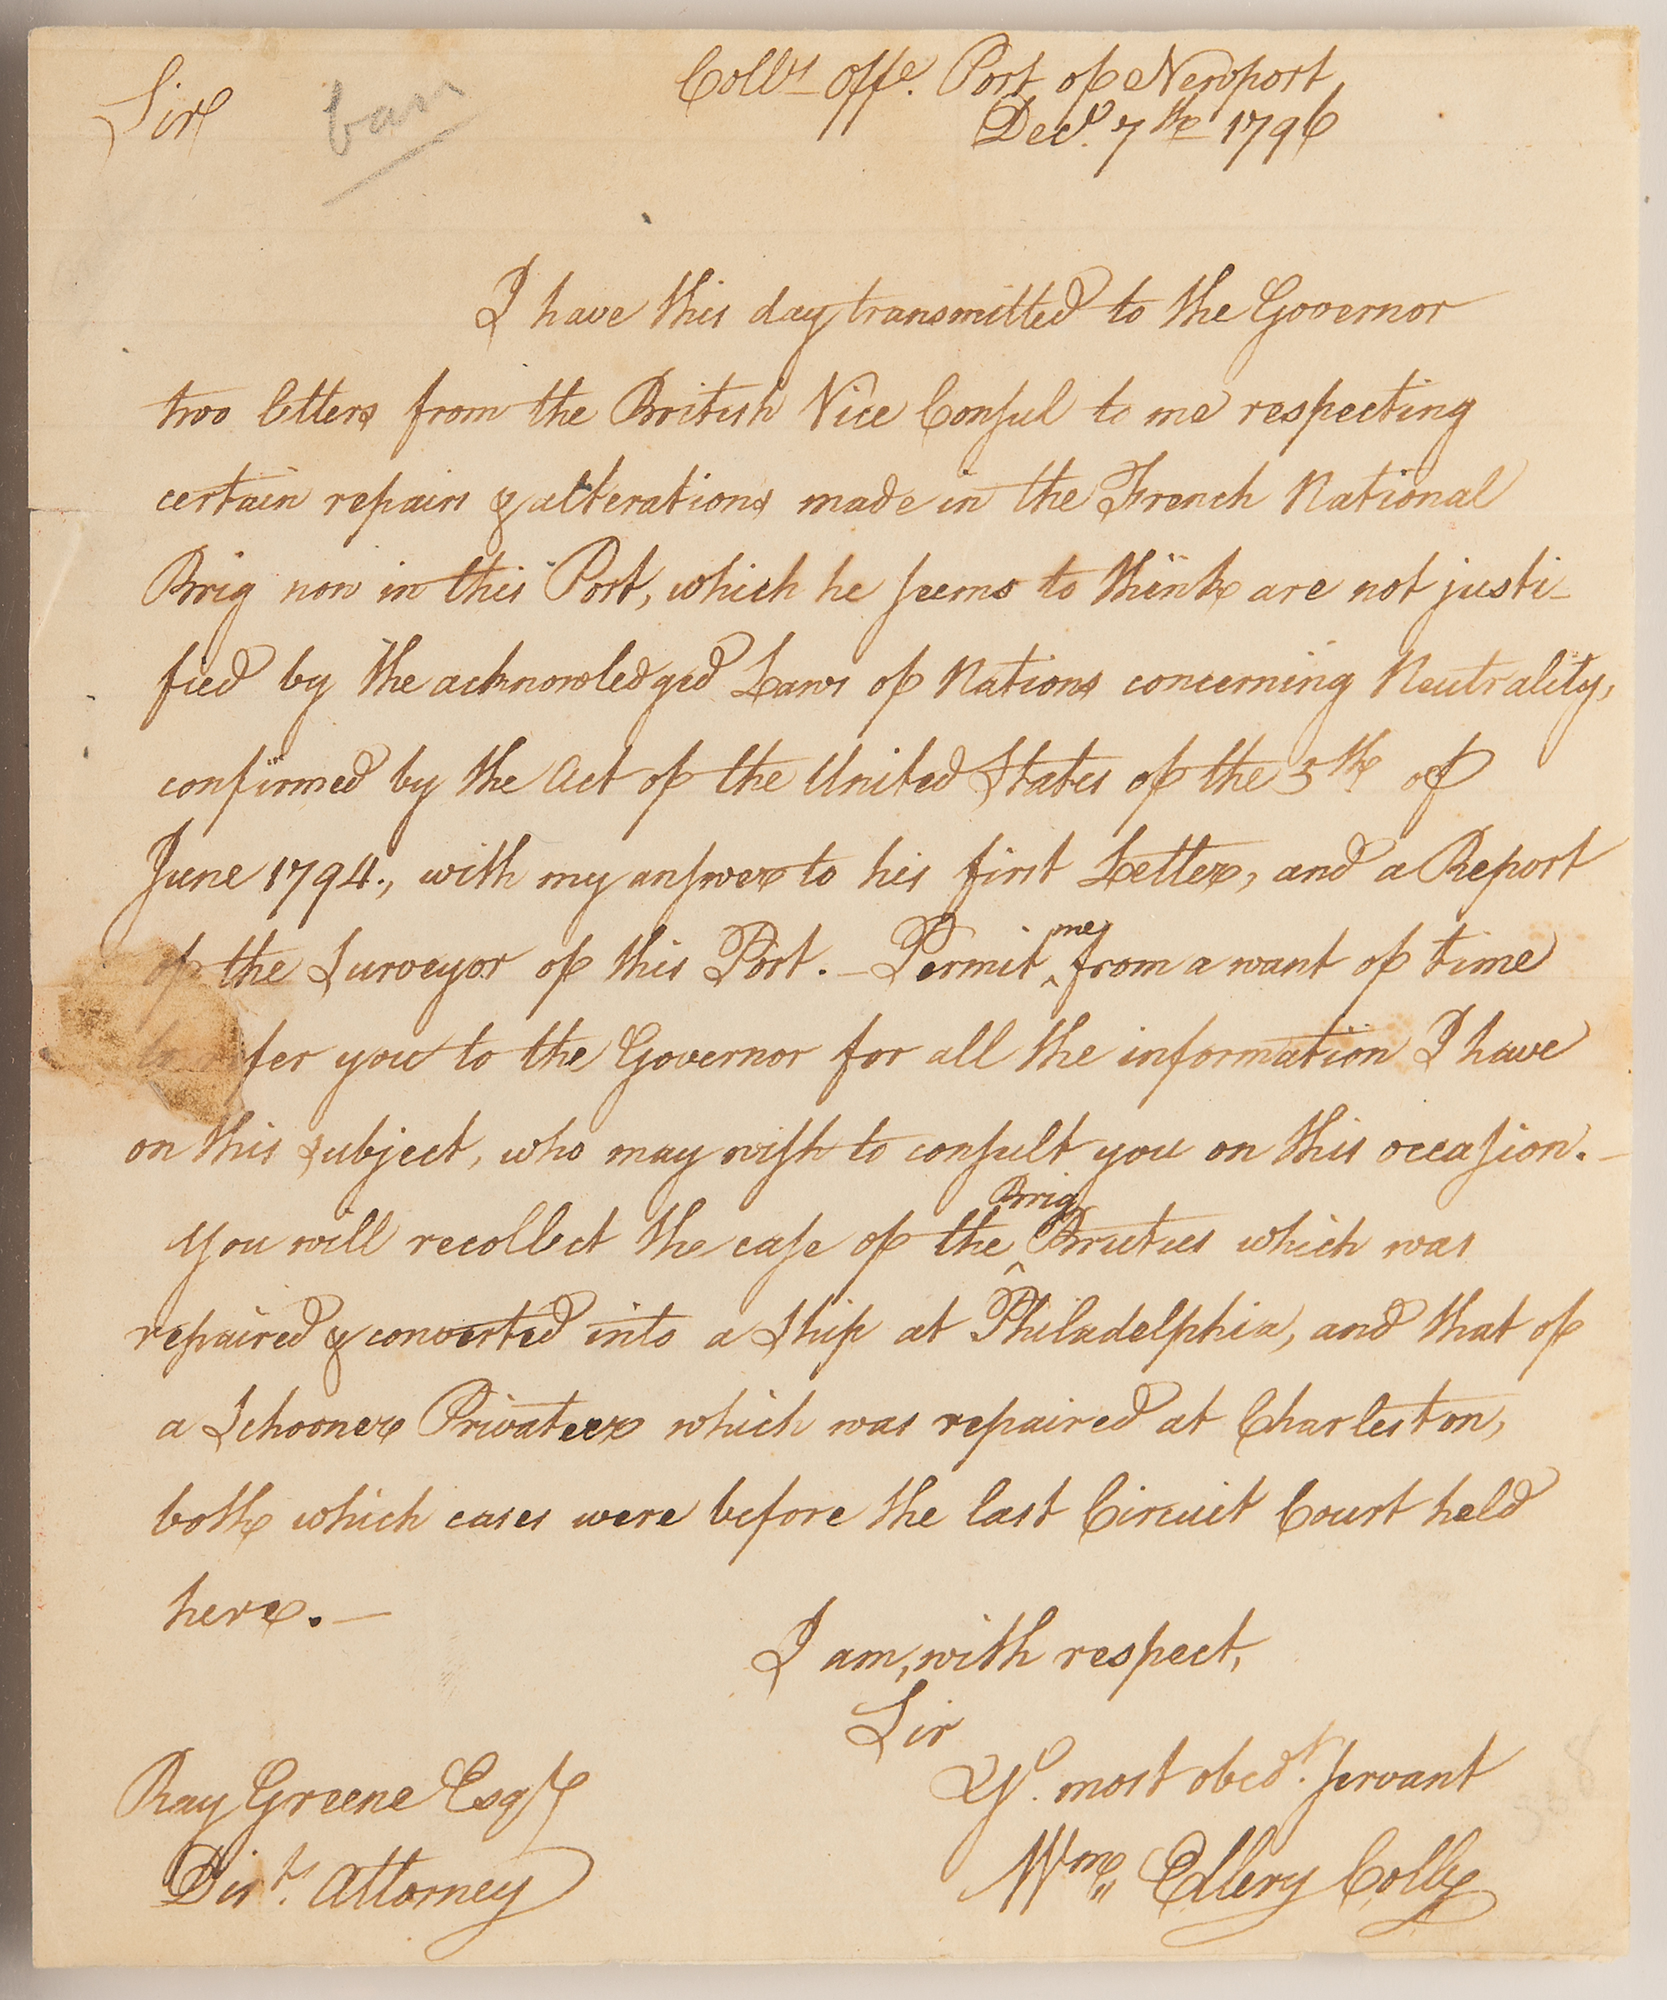 Coll.rs Offe. Port of Newport
Decr. 7th 1796
Sir
ban
I have this day transmitted to the Governor
two letters from the British Vice Consul to me respecting
certain repairs & alterations made in the French National
Brig now in this Port, which he seems to think are not justi-
fied by the acknowledged Laws of Nations concerning Neutrality,
confirmed by the Act of the United States of the 5th of
June 1794., with my answer to his first Letter, and a Report
of the Surveyor of this Port. — Permit me from a want of time
to refer you to the Governor for all the information I have
on this subject, who may wish to consult you on this occasion. —
You will recollect the case of the Brig Brutus which was
repaired & converted into a Ship at Philadelphia, and that of
a Schooner Privateer which was repaired at Charleston,
both which cases were before the last Circuit Court held
here. —
I am, with respect,
Sir
Yr. most obedt. servant
Wm. Ellery Collr
Ray Greene Esqr
Distt. Attorney